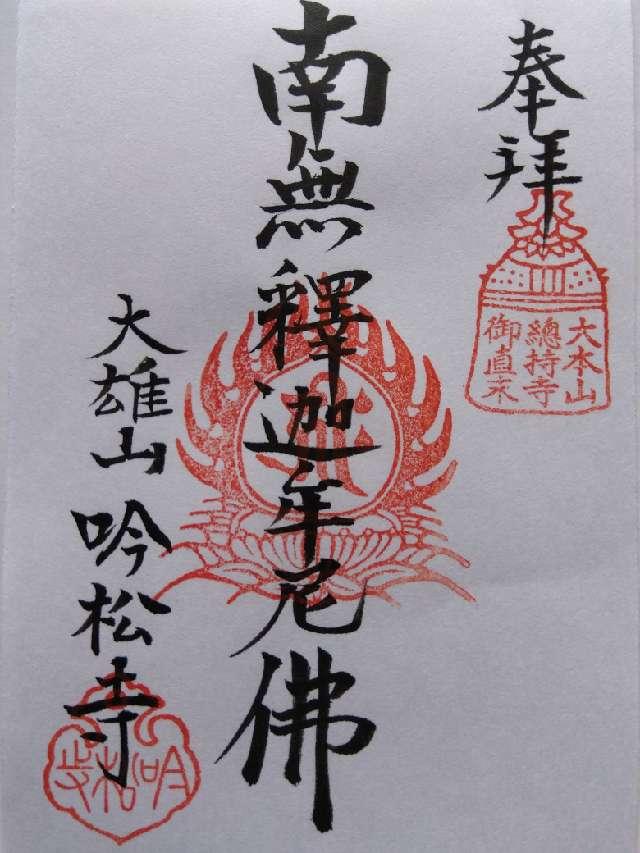 奉拝
大本山
總持寺
御直末
南無釋迦牟尼佛
大雄山 吟松寺
吟松寺